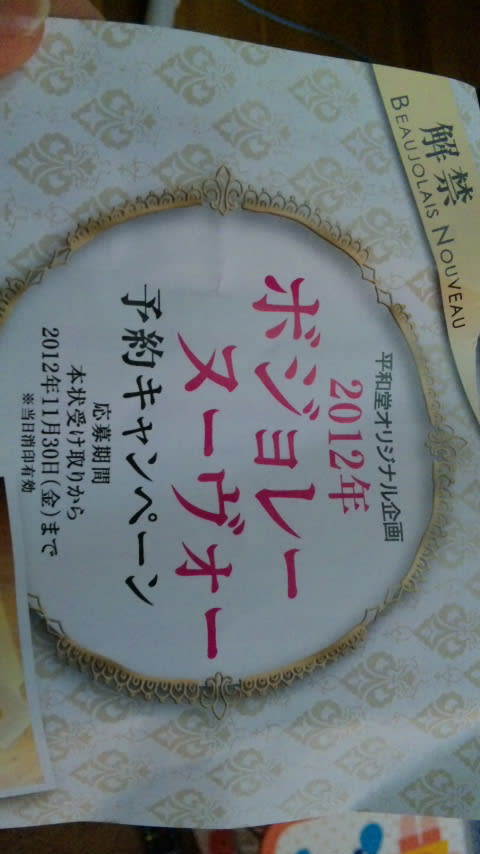 解禁
BEAUJOLAIS NOUVEAU
平和堂オリジナル企画
2012年
ボジョレー
ヌーヴォー
予約キャンペーン
応募期間
本状受け取りから
2012年11月30日(金)まで
※当日消印有効